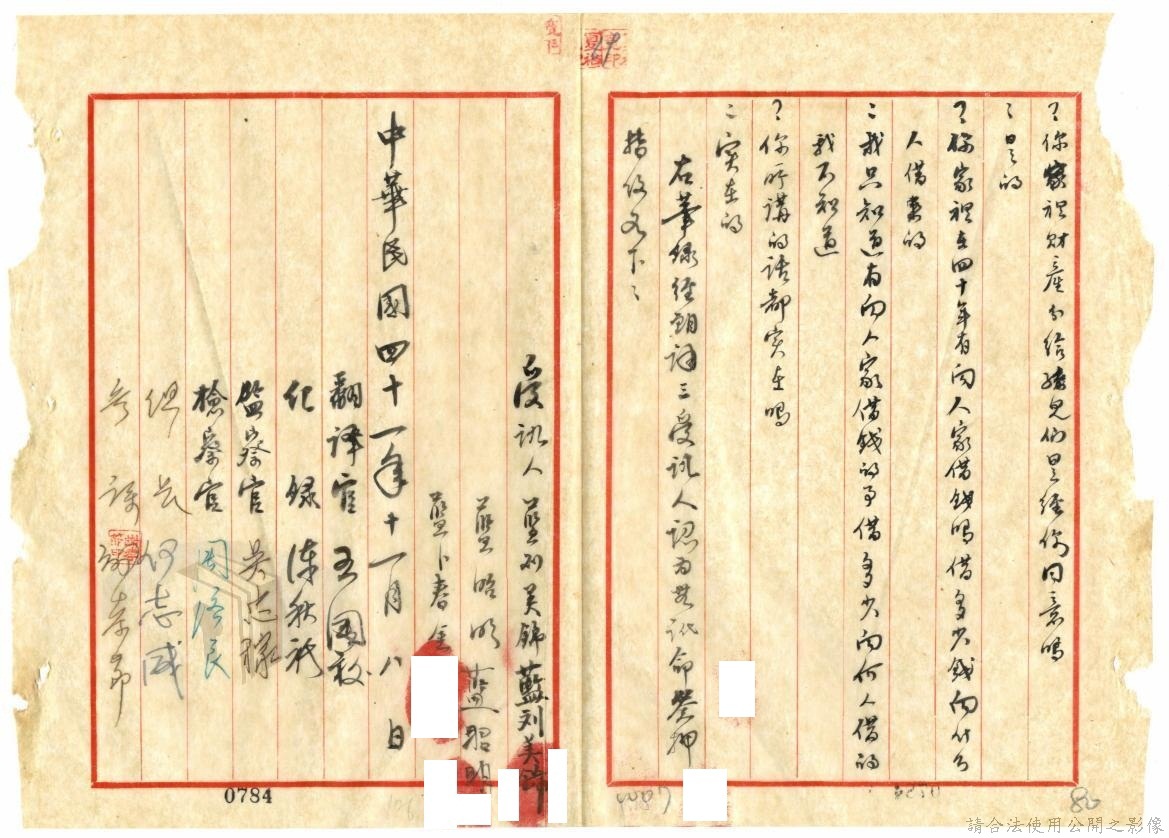 ？你家裡財產分給孩兒们是經你同意嗎
：是的
？你家裡在四十年有向人家借錢嗎借多少錢向什么
人借來的
：我只知道有向人家借錢的事借多少向何人借的
我不知道
？你所講的話都实在嗎
：实在的
右筆錄經翻譯受訊人認為無訛命簽押
於後
受訊人 藍刘美錦 藍刘美錦
藍昭明 藍昭明
藍卜春金
中華民國四十一年十一月八日
翻譯官 王國毅
紀錄 陳秋
監察官 吳志
檢察官 周濟良
組長 何志成
參謀
0784
80
請合法使用公開之影像